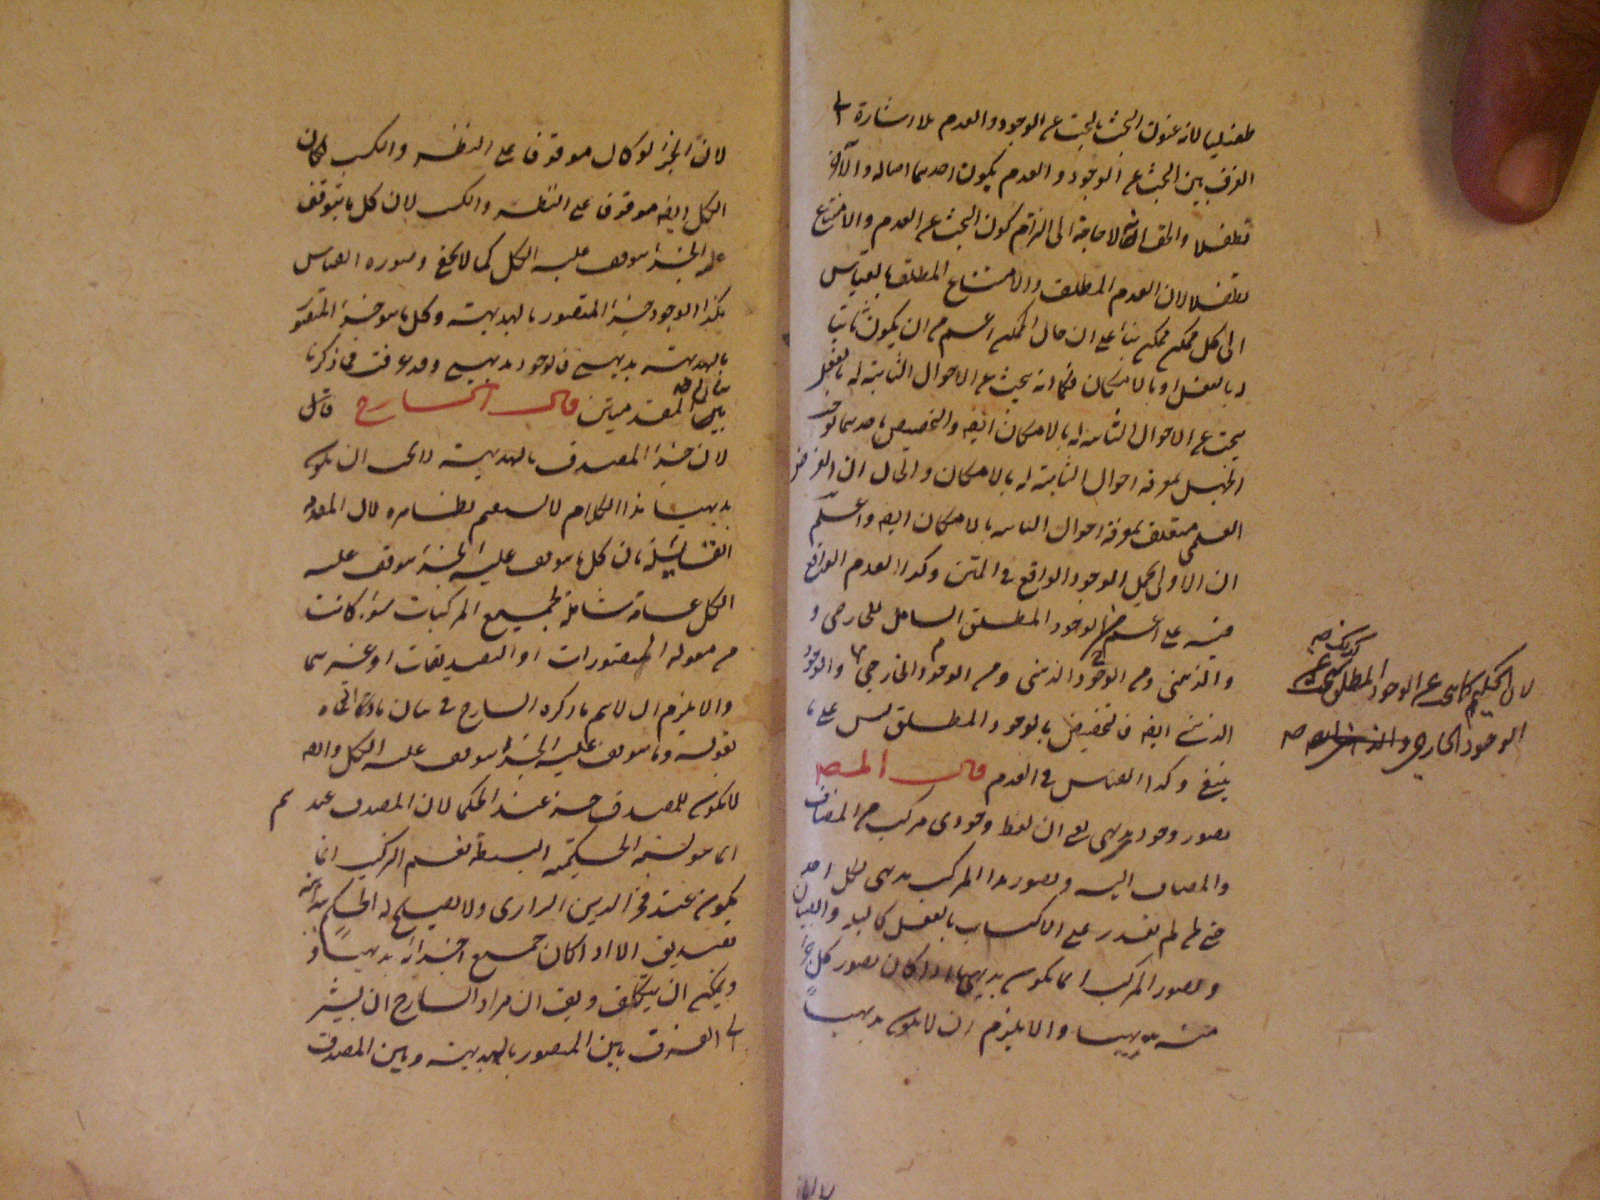 طفيليا لانه عنون البحث بالبحث عن الوجود والعدم بلا اشارة الى
الفرق بين البحث عن الوجود والعدم بكون احدهما اصالة والآخر
تطفلا والحق انه لا حاجة الى التزام كون البحث عن العدم والامتناع
تطفلا لان العدم المطلق والامتناع المطلق بالقياس
الى كل ممكن ممكن بناء على ان حال الممكن اعم من ان يكون ثابتا
له بالفعل او بالامكان فكما انه يبحث عن الاحوال الثابتة له بالفعل
يبحث عن الاحوال الثابتة له بالامكان ايضا والتخصيص باحدهما يوجب
الجهل بمعرفة احوال الثابتة له بالامكان والحال ان الغرض
العلمي متعلق بمعرفة احوال الثابتة بالامكان ايضا واعلم
ان الاولى حمل الوجود الواقع في المتن وكذا العدم الواقع
فيه على اعم من الوجود المطلق الشامل للخارجي و
والذهني ومن الوجود الذهني ومن الوجود الخارجي والوجود
الذهني ايضا فالتخصيص بالوجود المطلق ليس على ما
ينبغي وكذا القياس في العدم قال المص
تصور وجودي بديهي يعني ان لفظ وجودي مركب من المضاف
والمضاف اليه وتصور هذا المركب بديهي لكل احد
حتى لمن لم يقدر على الاكتساب بالفعل كالبله والصبيان
وتصور المركب انما يكون بديهيا اذا كان تصور كل جزء
منه بديهيا والا يلزم ان لا يكون بديهيا
لان الحكيم كما يبحث عن الوجود المطلق كذلك يبحث عن
الوجود الخارجي والذهني ايضا صح
لان الجزء لو كان موقوفا على النظر والكسب لكان
الكل ايضا موقوفا على النظر والكسب لان كل ما يتوقف
عليه الجزء يتوقف عليه الكل كما لا يخفى وصورة القياس
هكذا الوجود جزء المتصور بالبديهة وكل ما هو جزء المتصور
بالبديهة بديهي فالوجود بديهي وقد عرفت فيما ذكرنا
بيان المقدمتين قال الشارح قائل
لان جزء المصدق بالبديهة لا يجب ان يكون
بديهيا هذا الكلام لا يستقيم بظاهره لان المقدمة
القائلة بان كل ما يتوقف عليه الجزء يتوقف عليه
الكل عامة شاملة لجميع المركبات سواء كانت
من مقولة التصورات او التصديقات او غيرهما
والا يلزم ان لا يتم ما ذكره الشارح في بيان
بقوله وما يتوقف عليه الجزء يتوقف عليه الكل وايضا
لا يكون للتصديق جزء عند الحكماء لان التصديق عندهم
انما هو النسبة الحكمية البسيطة نعم التركيب انما
يكون عند فخر الدين الرازي ولا يصلح له الحكم ببداهة
تصديق الا اذا كان جميع اجزائه بديهيا
ويمكن ان يتكلف ويقال ان مراد الشارح ان يشير
الى الفرق بين المتصور بالبديهة وبين المصدق